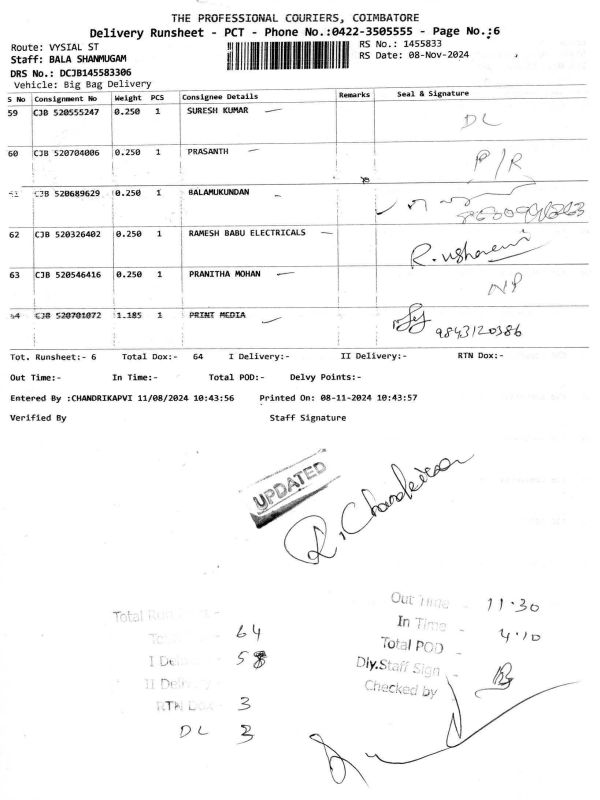 THE PROFESSIONAL COURIERS, COIMBATORE
Delivery Runsheet - PCT - Phone No.:0422-3505555 - Page No.:6
Route: VYSIAL ST RS No.: 1455833
Staff: BALA SHANMUGAM RS Date: 08-Nov-2024
DRS No.: DCJB145583306
Vehicle: Big Bag Delivery
S No Consignment No Weight PCS Consignee Details Remarks Seal & Signature
59 CJB 520555247 0.250 1 SURESH KUMAR DL
60 CJB 520704006 0.250 1 PRASANTH P/R
61 CJB 520689629 0.250 1 BALAMUKUNDAN
62 CJB 520326402 0.250 1 RAMESH BABU ELECTRICALS
63 CJB 520546416 0.250 1 PRANITHA MOHAN NP
64 CJB 520701072 1.185 1 PRINT MEDIA 9843120386
Tot. Runsheet:- 6 Total Dox:- 64 I Delivery:- II Delivery:- RTN Dox:-
Out Time:- In Time:- Total POD:- Delvy Points:-
Entered By :CHANDRIKAPVI 11/08/2024 10:43:56 Printed On: 08-11-2024 10:43:57
Verified By Staff Signature
UPDATED
Out Time - 11.30
In Time - 4.10
Total POD -
Dly.Staff Sign -
Checked by -
Total Run
64
I Deli 58
II Delivery -
RTN Dox - 3
DL 3